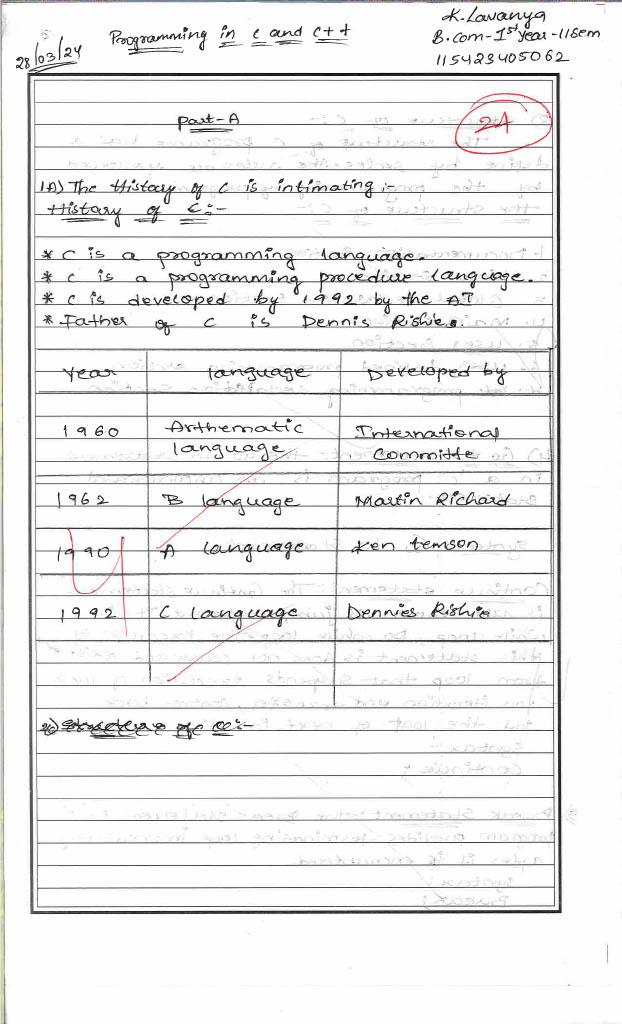 Programming in c and c++
28/03/24
K. Lavanya
B.com-1st year-IISem
115423405062
part-A
24
1A) The History of C is intimating :-
History of C:-
* C is a programming language.
* C is a programming procedure language.
* C is developed by 1992 by the AT
* Father of C is Dennis Rishie.
Year language Developed by
1960 Arthematic language International Committe
1962 B language Martin Richard
1990 A language Ken temson
1992 C language Dennies Rishie
4